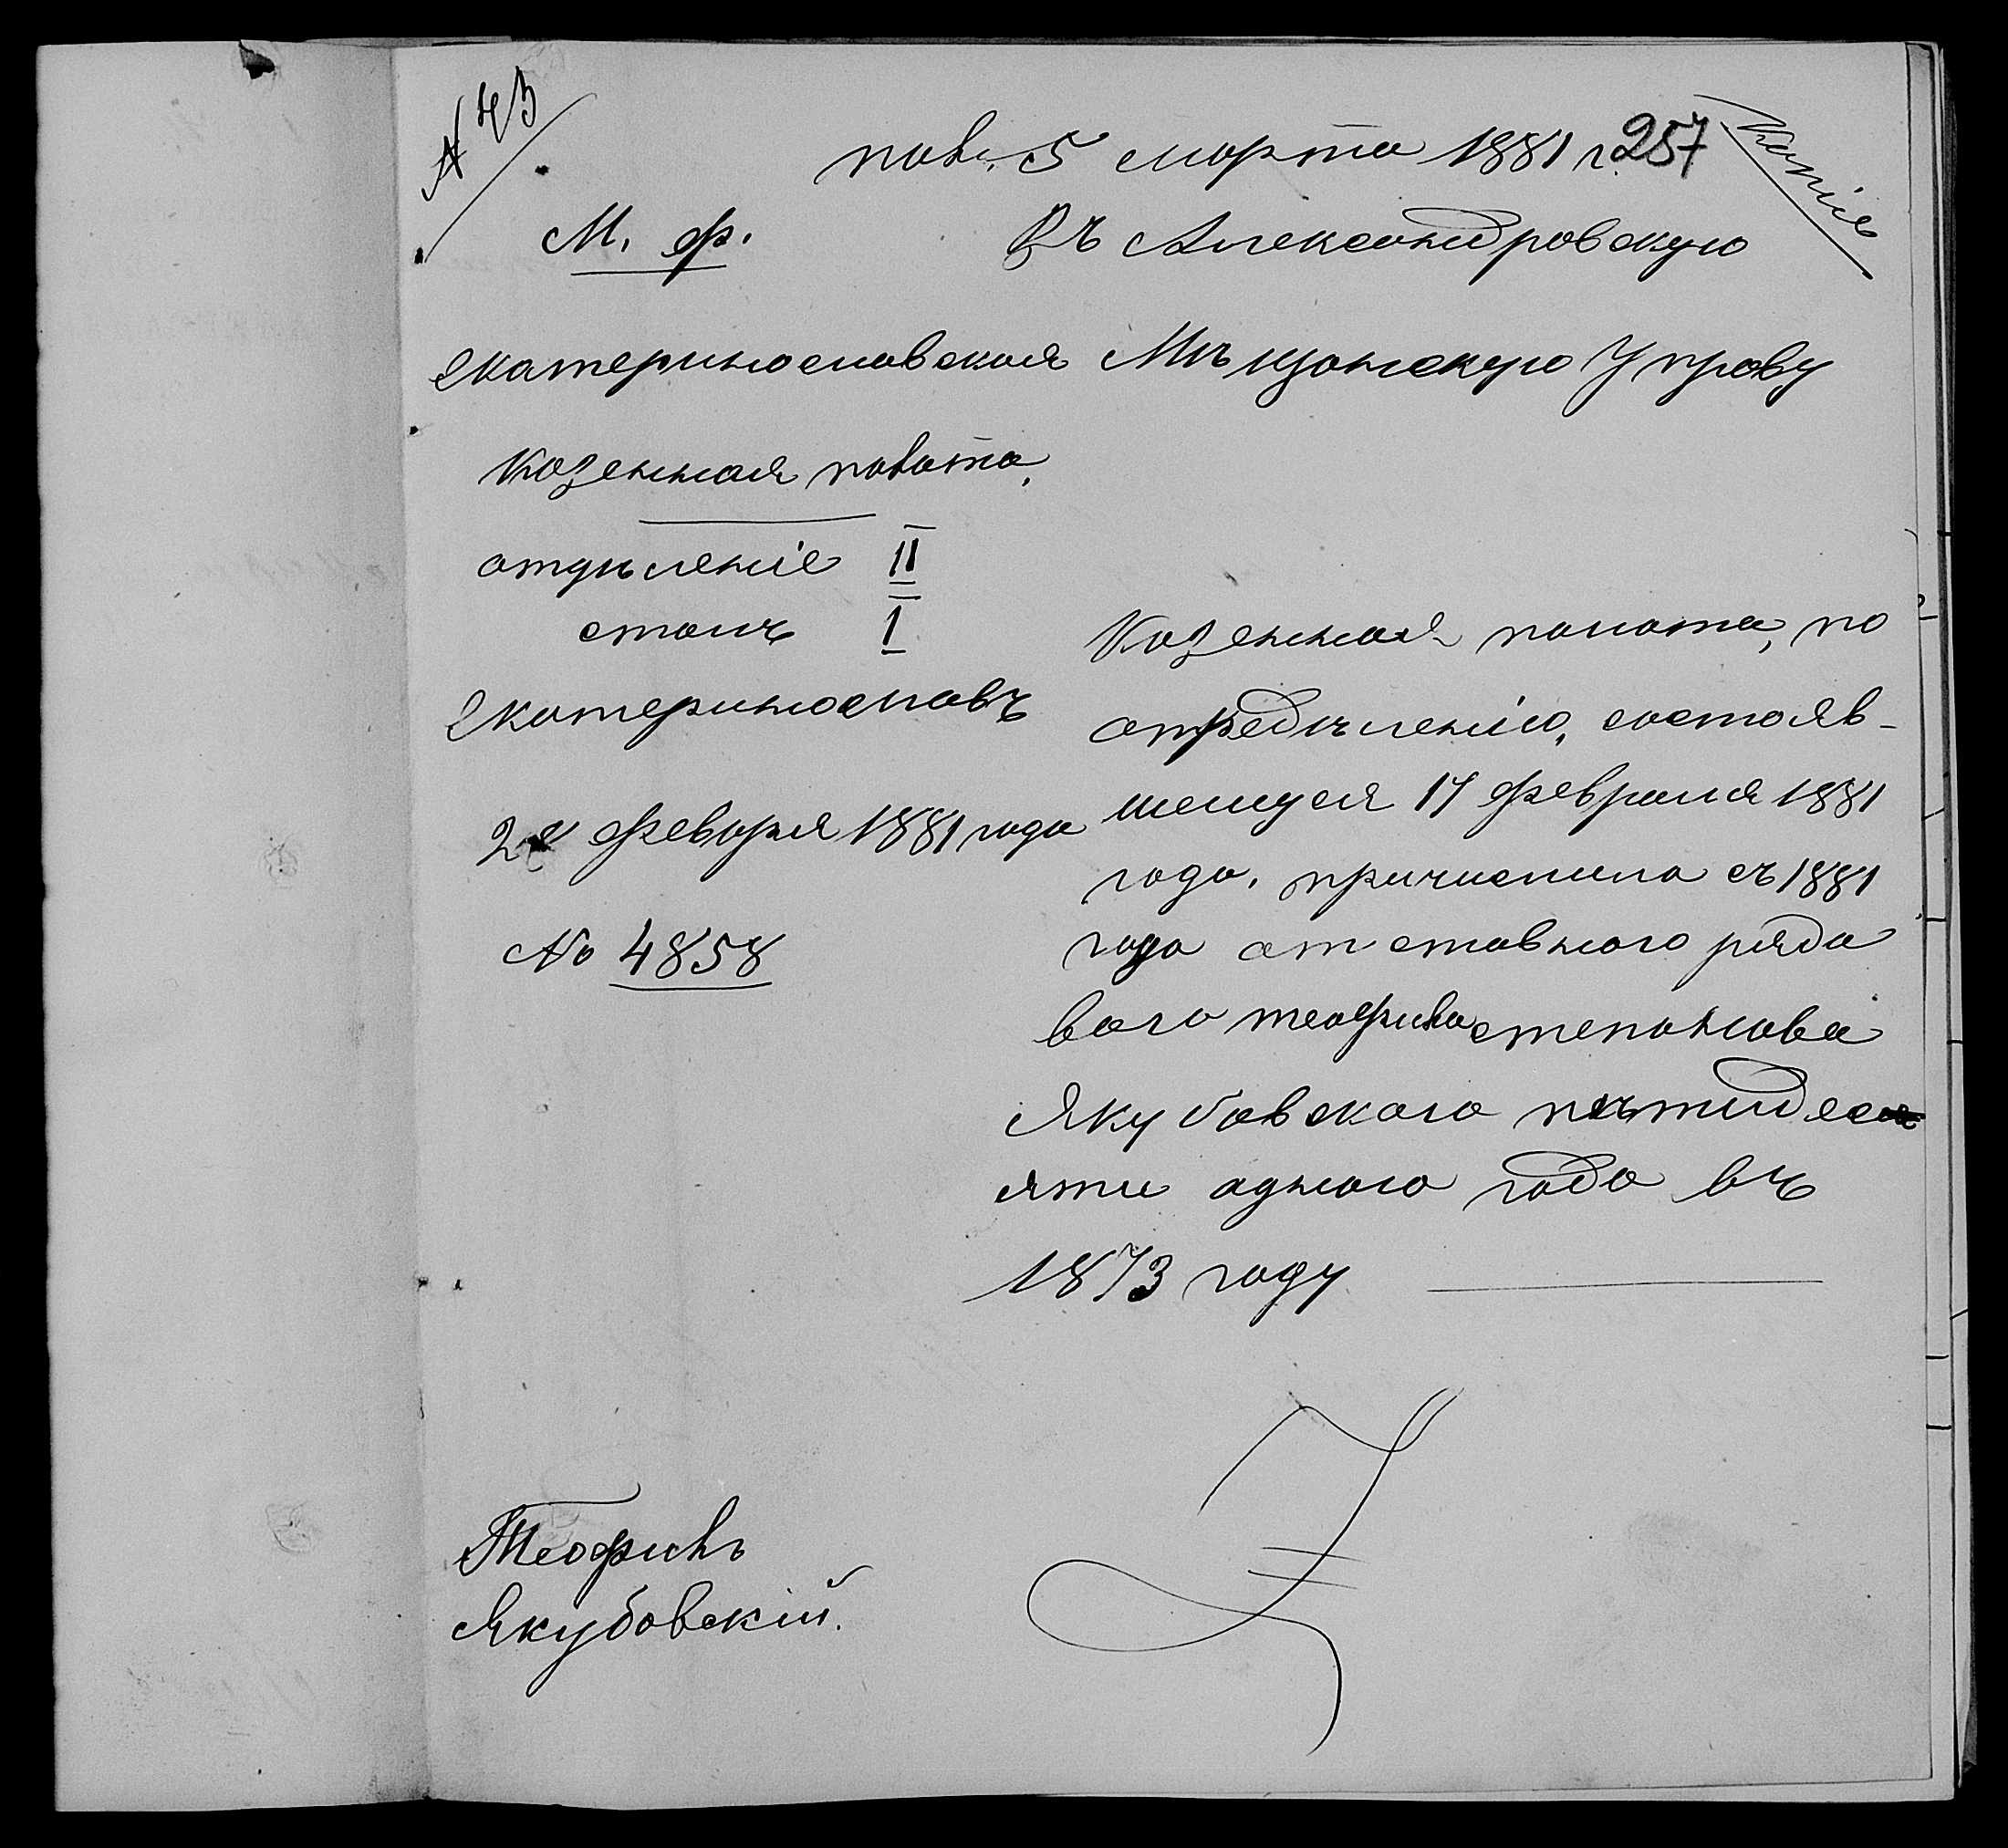 N 43
пол. 5 марта 1881 г. 257
Копія
М. Ф.
Екатеринославская
Казенная палата.
отдѣленіе II
столъ I
Екатеринославъ
февраля 1881 года
No 4858
Въ Александровскую
Мѣщанскую Управу
Казенная палата, по
опредѣленію, состояв-
шемуся 17 февраля 1881
года, причислила съ 1881
года отставного рядо
вого Теофила Степанова
Якубовского пятидес
яти одного года въ
1873 году
Теофилъ
Якубовскій.